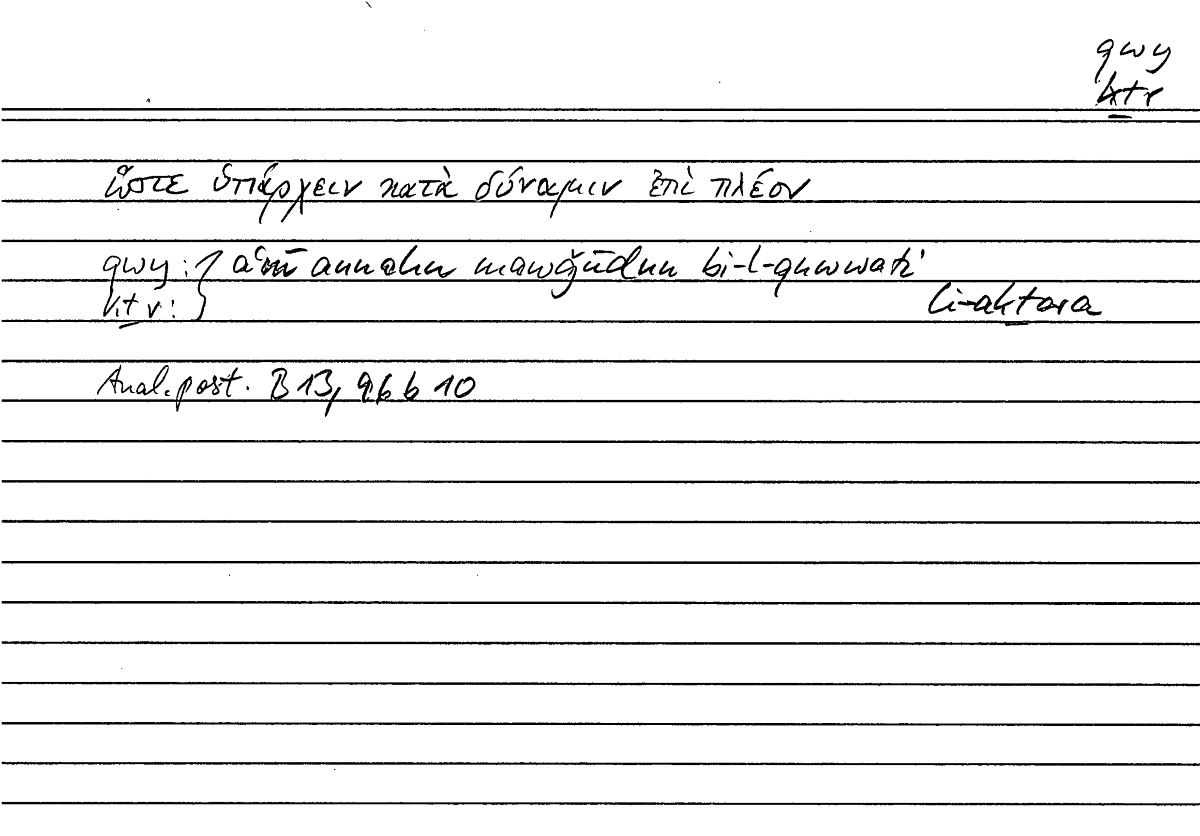 qwy
kṯr
ὥστε ὑπάρχειν κατὰ δύναμιν ἐπὶ πλέον
qwy: } aʿnī annahu mawǧūdun bi-l-quwwati
kṯr: } li-akṯara
Anal. post. B 13, 96 b 10